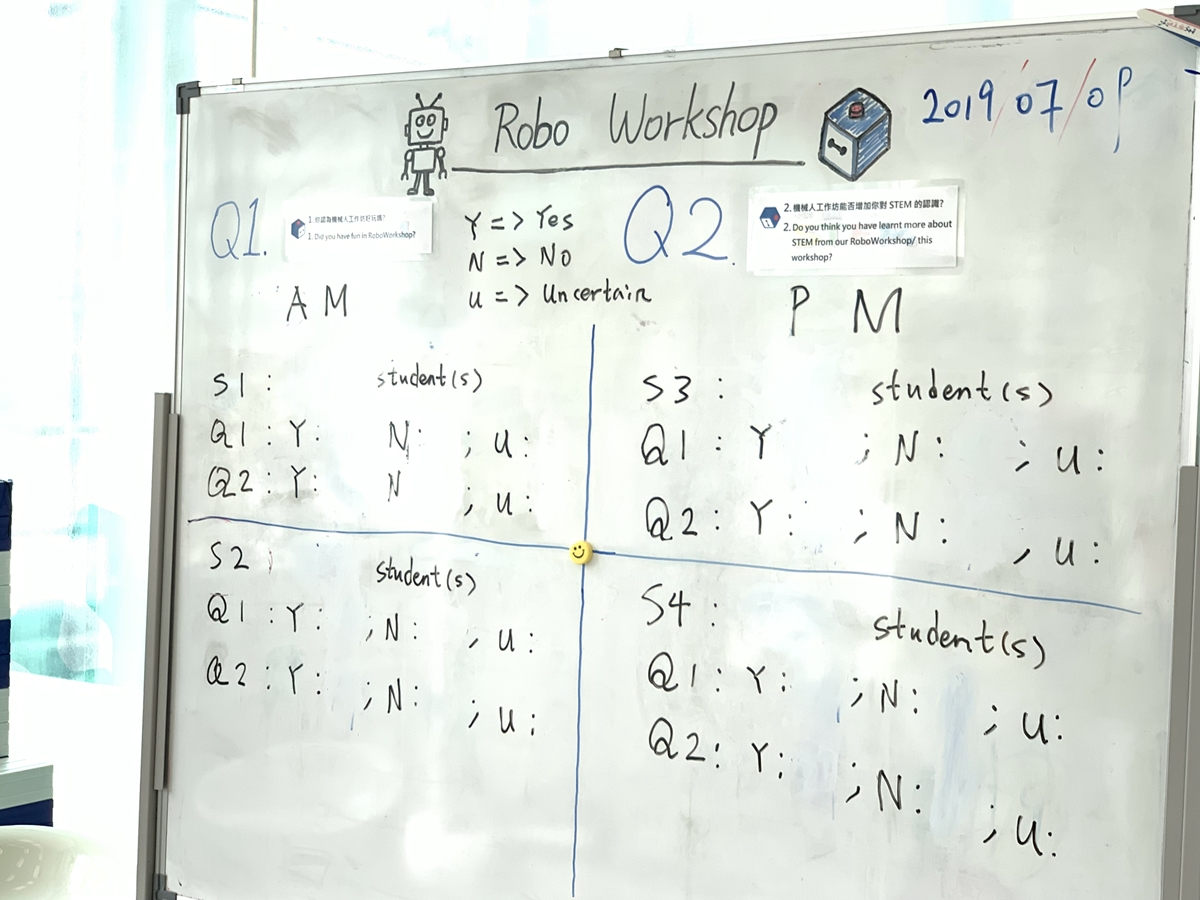 Robo Workshop
2019/07/09
Q1.
1. 你認為機械人工作坊好玩嗎?
1. Did you have fun in RoboWorkshop?
Y => Yes
N => No
u => Uncertain
Q2.
2. 機械人工作坊能否增加你對 STEM 的認識?
2. Do you think you have learnt more about
STEM from our RoboWorkshop/ this
workshop?
AM
PM
S1: student(s)
Q1: Y: N: ; U:
Q2: Y: N ; U:
S2 student(s)
Q1: Y: ; N: , U:
Q2: Y: ; N: ; U:
S3: student(s)
Q1: Y ; N: ; U:
Q2: Y: ; N: , U:
S4: student(s)
Q1: Y: ; N: ; U:
Q2: Y: ; N: ; U: